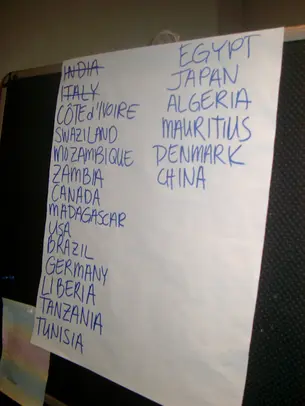 INDIA
ITALY
CÔTE d'IVOIRE
SWAZILAND
MOZAMBIQUE
ZAMBIA
CANADA
MADAGASCAR
USA
BRAZIL
GERMANY
LIBERIA
TANZANIA
TUNISIA
EGYPT
JAPAN
ALGERIA
MAURITIUS
DENMARK
CHINA